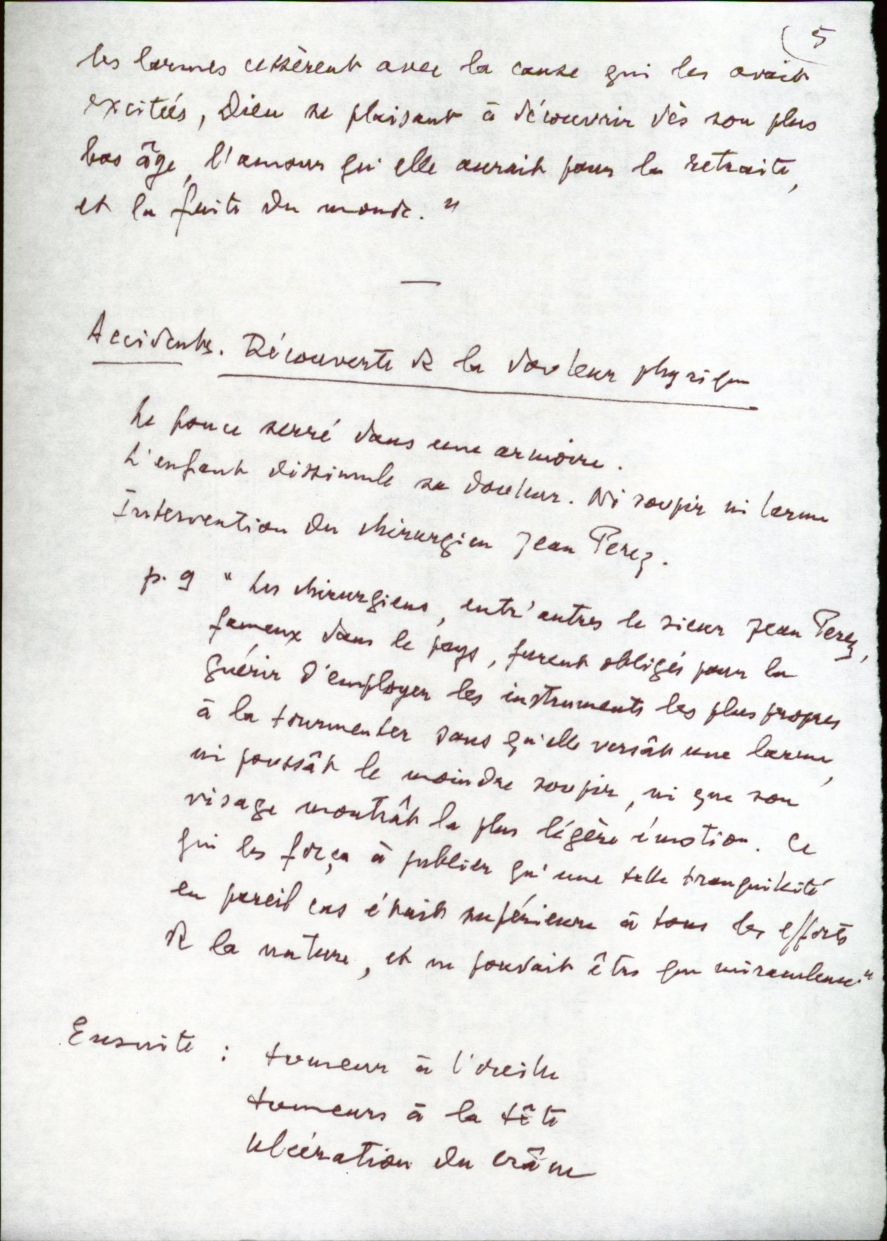 (5
les larmes cessèrent avec la cause qui les avait
excitées, Dieu se plaisant à découvrir dès son plus
bas âge, l'amour qu'elle aurait pour la retraite,
et la fuite du monde."
—
Accidents. Découverte de la douleur physique
Le pouce serré dans une armoire.
L'enfant dissimule sa douleur. Ni soupir ni larme
Intervention du chirurgien Jean Perez.
p. 9 " Les chirurgiens, entr'autres le sieur Jean Perez,
fameux dans le pays, furent obligés pour la
guérir d'employer les instruments les plus propres
à la tourmenter sans qu'elle versât une larme,
ni poussât le moindre soupir, ni que son
visage montrât la plus légère émotion. Ce
qui les força à publier qu'une telle tranquillité
en pareil cas était supérieure à tous les efforts
de la nature, et ne pouvait être que miraculeuse."
Ensuite : tumeur à l'oreille
tumeurs à la tête
ulcération du crâne